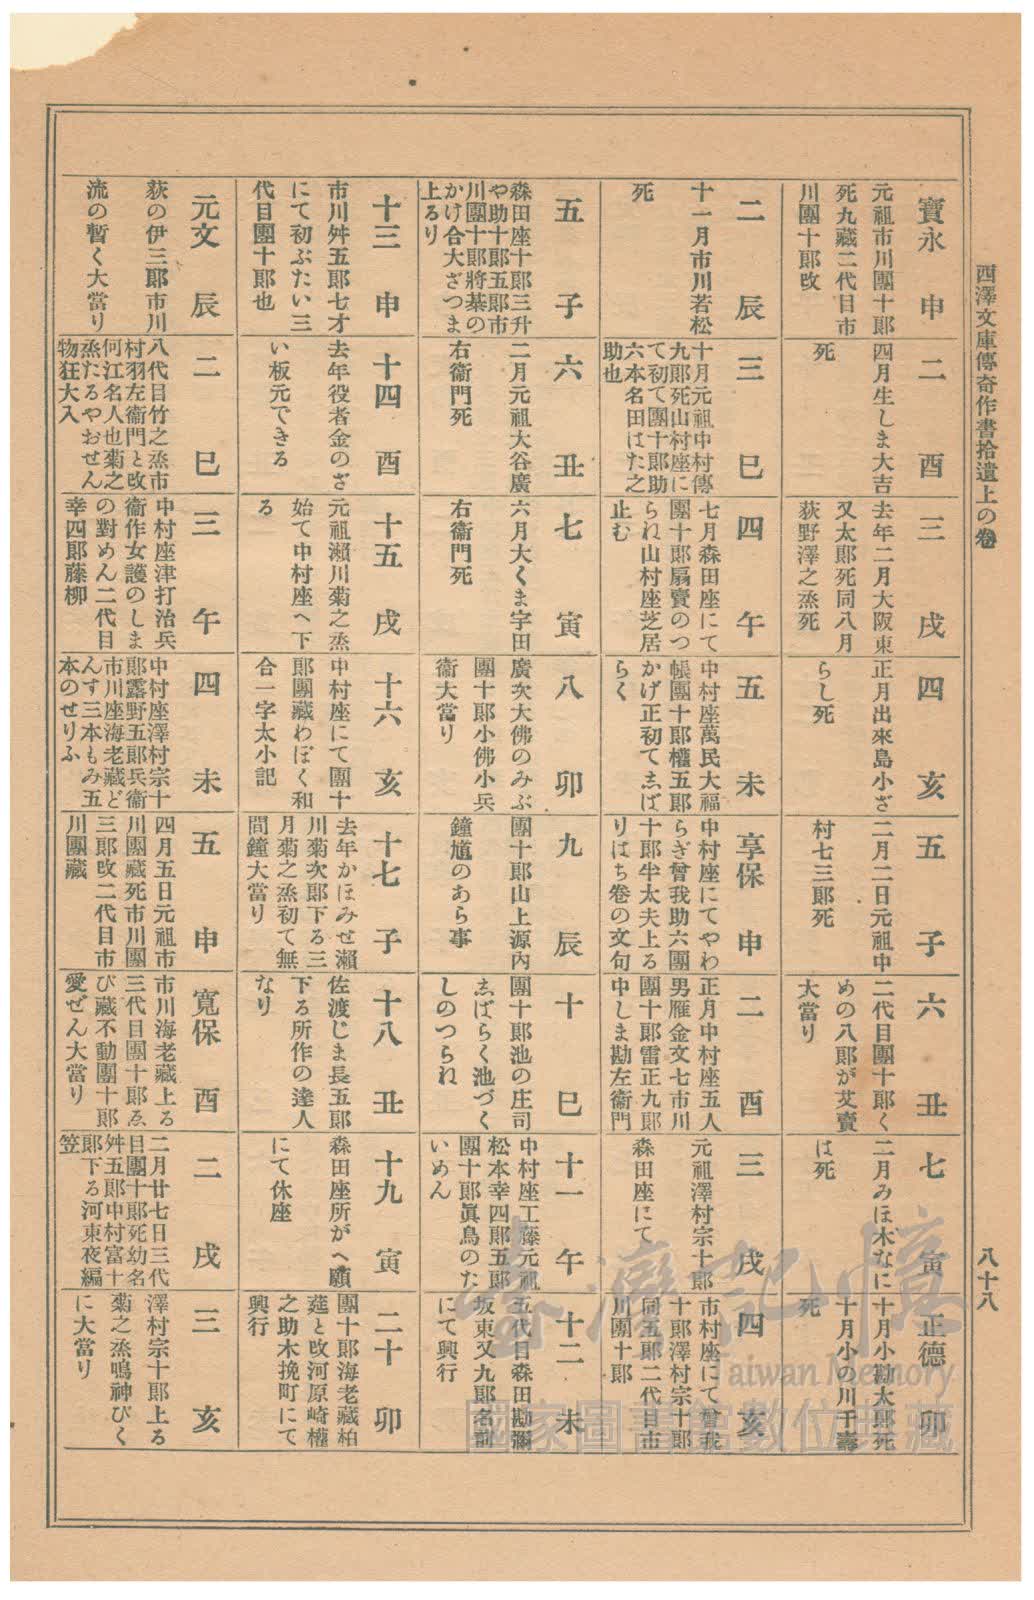 西澤文庫傳奇作書拾遺上の卷
八十八
寶永 申
元祖市川團十郎
死九藏二代目市
川團十郎改
二 酉
四月生しま大吉
死
三 戌
去年二月大阪東
又太郎死同八月
荻野澤之烝死
四 亥
正月出來島小ざ
らし死
五 子
二月二日元祖中
村七三郎死
六 丑
二代目團十郎く
めの八郎が艾賣
大當り
七 寅
二月みほ木なに
は死
正德 卯
十月小勘太郎死
十月小の川千壽
死
二 辰
十一月市川若松
死
三 巳
十月元祖中村傳
九郎死山村座に
て初て團十郎助
六本名田はた之
助也
四 午
七月森田座にて
團十郎扇賣のつ
られ山村座芝居
止む
五 未
中村座萬民大福
帳團十郎權五郎
かげ正初てゑば
らく
享保 申
中村座にてやわ
らぎ曾我助六團
十郎半太夫上る
りはち卷の文句
二 酉
正月中村座五人
男雁金文七市川
團十郎雷正九郎
中しま勘左衞門
三 戌
元祖澤村宗十郎
森田座にて
四 亥
市村座にて曾我
十郎澤村宗十郎
同五郎二代目市
川團十郎
五 子
森田座十郎三升
や助十郎五郎市
川團十郎將棊の
かけ合大ざつま
上るり
六 丑
二月元祖大谷廣
右衞門死
七 寅
六月大くま宇田
右衞門死
八 卯
廣次大佛のみぶ
團十郎小佛小兵
衞大當り
九 辰
團十郎山上源內
鐘馗のあら事
十 巳
團十郎池の庄司
ゑばらく池づく
しのつられ
十一 午
中村座工藤元祖
松本幸四郎五郎
團十郎眞鳥のた
いめん
十二 未
五代目森田勘彌
坂東又九郎名前
にて興行
十三 申
市川舛五郎七才
にて初ぶたい三
代目團十郎也
十四 酉
去年役者金のざ
い板元できる
十五 戌
元祖瀨川菊之烝
始て中村座へ下
る
十六 亥
中村座にて團十
郎團藏わぼく和
合一字太小記
十七 子
去年かほみせ瀨
川菊次郎下る三
月菊之烝初て無
間鐘大當り
十八 丑
佐渡じま長五郎
下る所作の達人
なり
十九 寅
森田座所がへ願
にて休座
二十 卯
團十郎海老藏柏
莚と改河原崎權
之助木挽町にて
興行
元文 辰
荻の伊三郎市川
流の暫く大當り
二 巳
八代目竹之烝市
村羽左衞門と改
何江名人也菊之
烝たるやおせん
物狂大入
三 午
中村座津打治兵
衞作女護のしま
の對めん二代目
幸四郎藤柳
四 未
中村座澤村宗十
郎露野五郎兵衞
市川座海老藏ど
んす三本もみ五
本のせりふ
五 申
四月五日元祖市
川團藏死市川團
三郎改二代目市
川團藏
寬保 酉
市川海老藏上る
三代目團十郎ゑ
び藏不動團十郎
愛ぜん大當り
二 戌
二月廿七日三代
目團十郎死幼名
舛五郎中村富十
郎下る河東夜編
笠
三 亥
澤村宗十郎上る
菊之烝鳴神びく
に大當り
臺灣記憶
Taiwan Memory
國家圖書館數位典藏